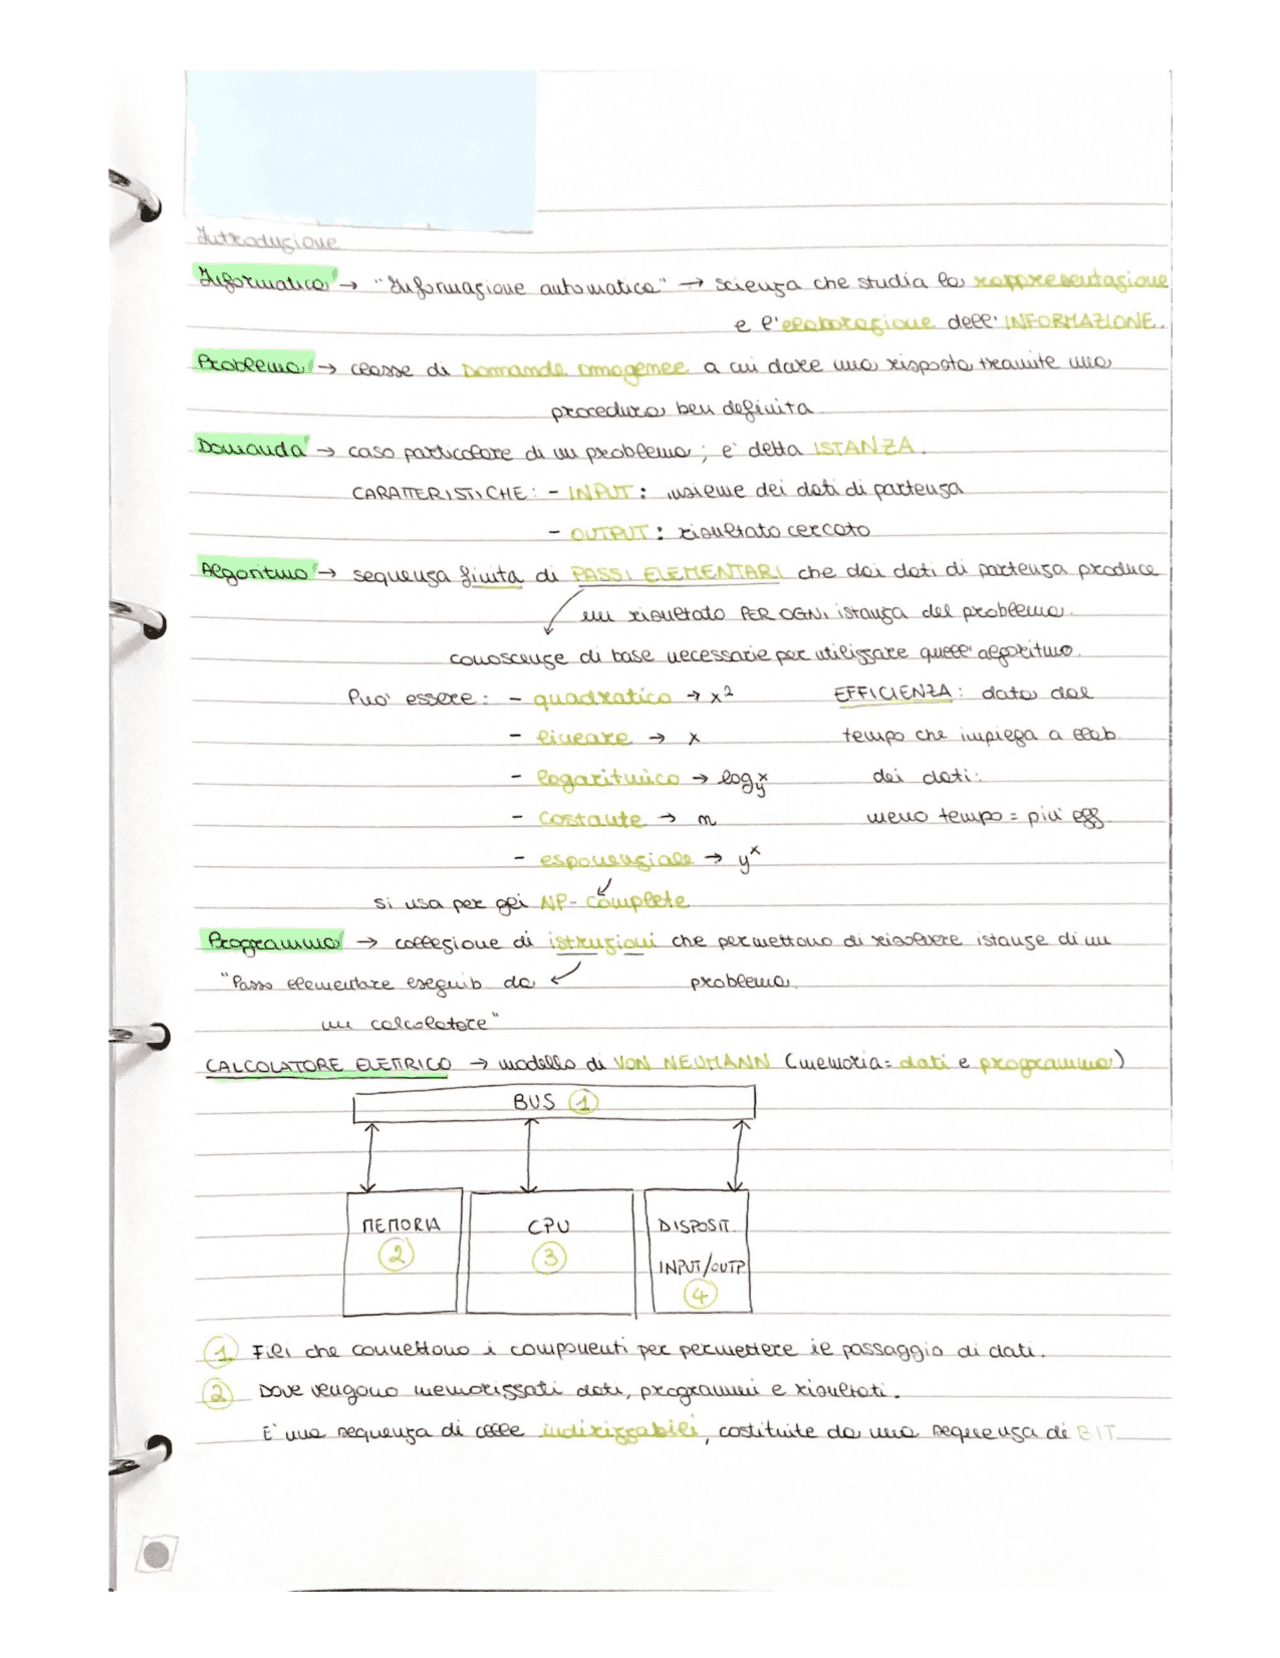 Introduzione
Informatica → "Informazione automatica" → scienza che studia la rappresentazione
e l'elaborazione dell'INFORMAZIONE.
Problema → classe di Domande omogenee a cui dare una risposta tramite una
procedura ben definita
Domanda → caso particolare di un problema; e' detta ISTANZA.
CARATTERISTICHE: - INPUT: insieme dei dati di partenza
- OUTPUT: risultato cercato
Algoritmo → sequenza finita di PASSI ELEMENTARI che dai dati di partenza produce
un risultato PER OGNI istanza del problema.
conoscenze di base necessarie per utilizzare quell'algoritmo.
Puo' essere: - quadratico → x² EFFICIENZA: data dal
- lineare → x tempo che impiega a elab.
- logaritmico → log y x dei dati:
- costante → m meno tempo = piu' eff.
- esponenziale → yˣ
si usa per gli NP-complete
Programma → collezione di istruzioni che permettono di risolvere istanze di un
"Passo elementare eseguib da problema.
un calcolatore"
CALCOLATORE ELETTRICO → modello di VON NEUMANN (memoria = dati e programma)
BUS 1
MEMORIA CPU DISPOSIT.
2 3 INPUT/OUTP
4
1 Fili che connettono i componenti per permettere il passaggio di dati.
2 Dove vengono memorizzati dati, programmi e risultati.
E' una sequenza di celle indirizzabili, costituite da una sequenza di BIT